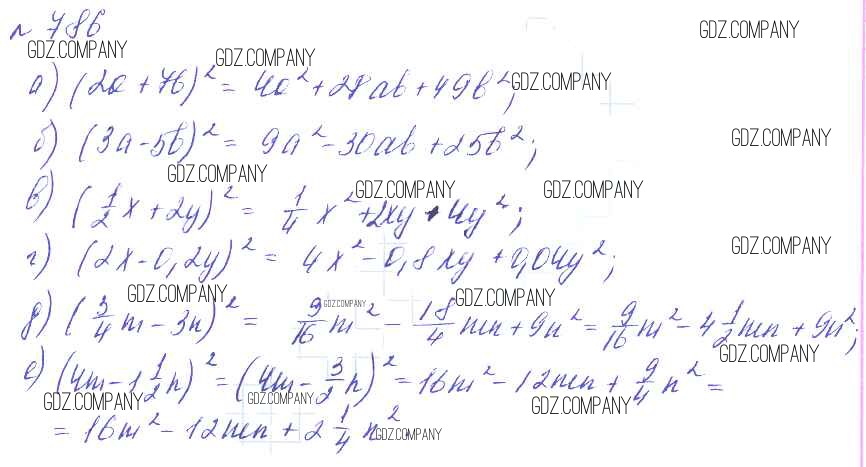 № 786
GDZ.COMPANY GDZ.COMPANY GDZ.COMPANY
а) (2a + 7b)² = 4a² + 28ab + 49b²;
GDZ.COMPANY
б) (3a - 5b)² = 9a² - 30ab + 25b²;
GDZ.COMPANY
GDZ.COMPANY GDZ.COMPANY GDZ.COMPANY
в) (1/2 x + 2y)² = 1/4 x² + 2xy + 4y²;
г) (2x - 0,2y)² = 4x² - 0,8xy + 0,04y²;
GDZ.COMPANY
GDZ.COMPANY GDZ.COMPANY GDZ.COMPANY
д) (3/4 m - 3n)² = 9/16 m² - 18/4 mn + 9n² = 9/16 m² - 4 1/2 mn + 9n²;
GDZ.COMPANY
е) (4m - 1 1/2 n)² = (4m - 3/2 n)² = 16m² - 12mn + 9/4 n² =
GDZ.COMPANY GDZ.COMPANY GDZ.COMPANY
= 16m² - 12mn + 2 1/4 n².
GDZ.COMPANY